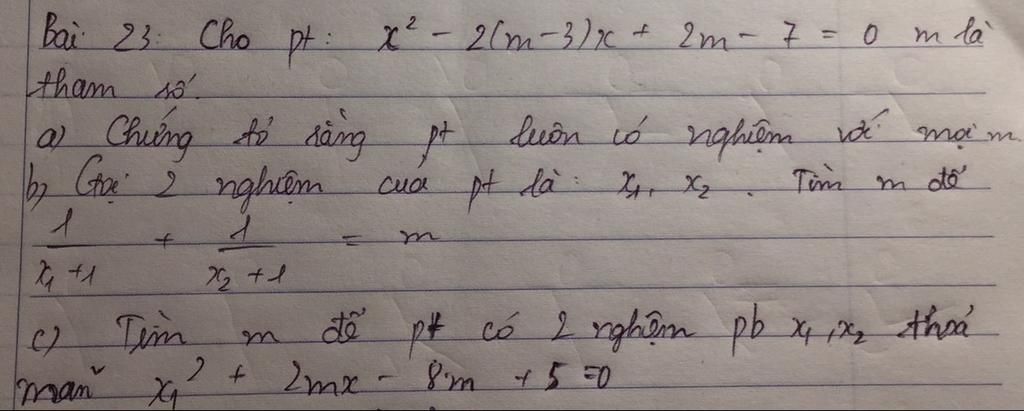 Bài 23: Cho pt: x² - 2(m-3)x + 2m - 7 = 0 m là
tham số.
a) Chứng tỏ rằng pt luôn có nghiệm với mọi m.
b) Gọi 2 nghiệm của pt là: x₁, x₂. Tìm m để
1/(x₁+1) + 1/(x₂+1) = m
c) Tìm m để pt có 2 nghiệm pb x₁, x₂ thoả
mãn x₁² + 2mx - 8m + 5 = 0